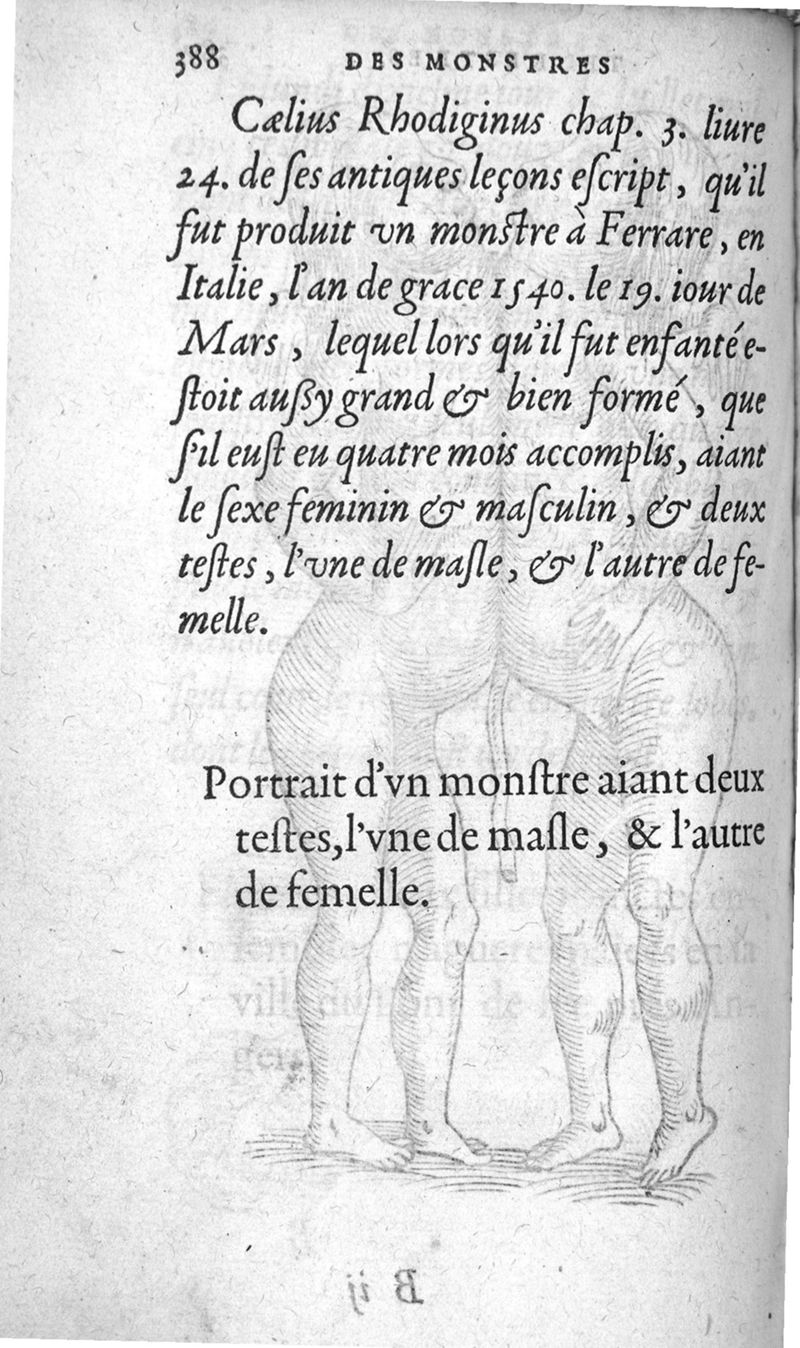 388 DES MONSTRES
Cælius Rhodiginus chap. 3. liure
24. de ſes antiques leçons eſcript, qu'il
fut produit vn monſtre à Ferrare, en
Italie, l'an de grace 1540. le 19. iour de
Mars, lequel lors qu'il fut enfanté e-
ſtoit auſſy grand & bien formé, que
ſ'il euſt eu quatre mois accomplis, aiant
le ſexe feminin & maſculin, & deux
teſtes, l'vne de maſle, & l'autre de fe-
melle.
Portrait d'vn monſtre aiant deux
teſtes, l'vne de maſle, & l'autre
de femelle.
B ij